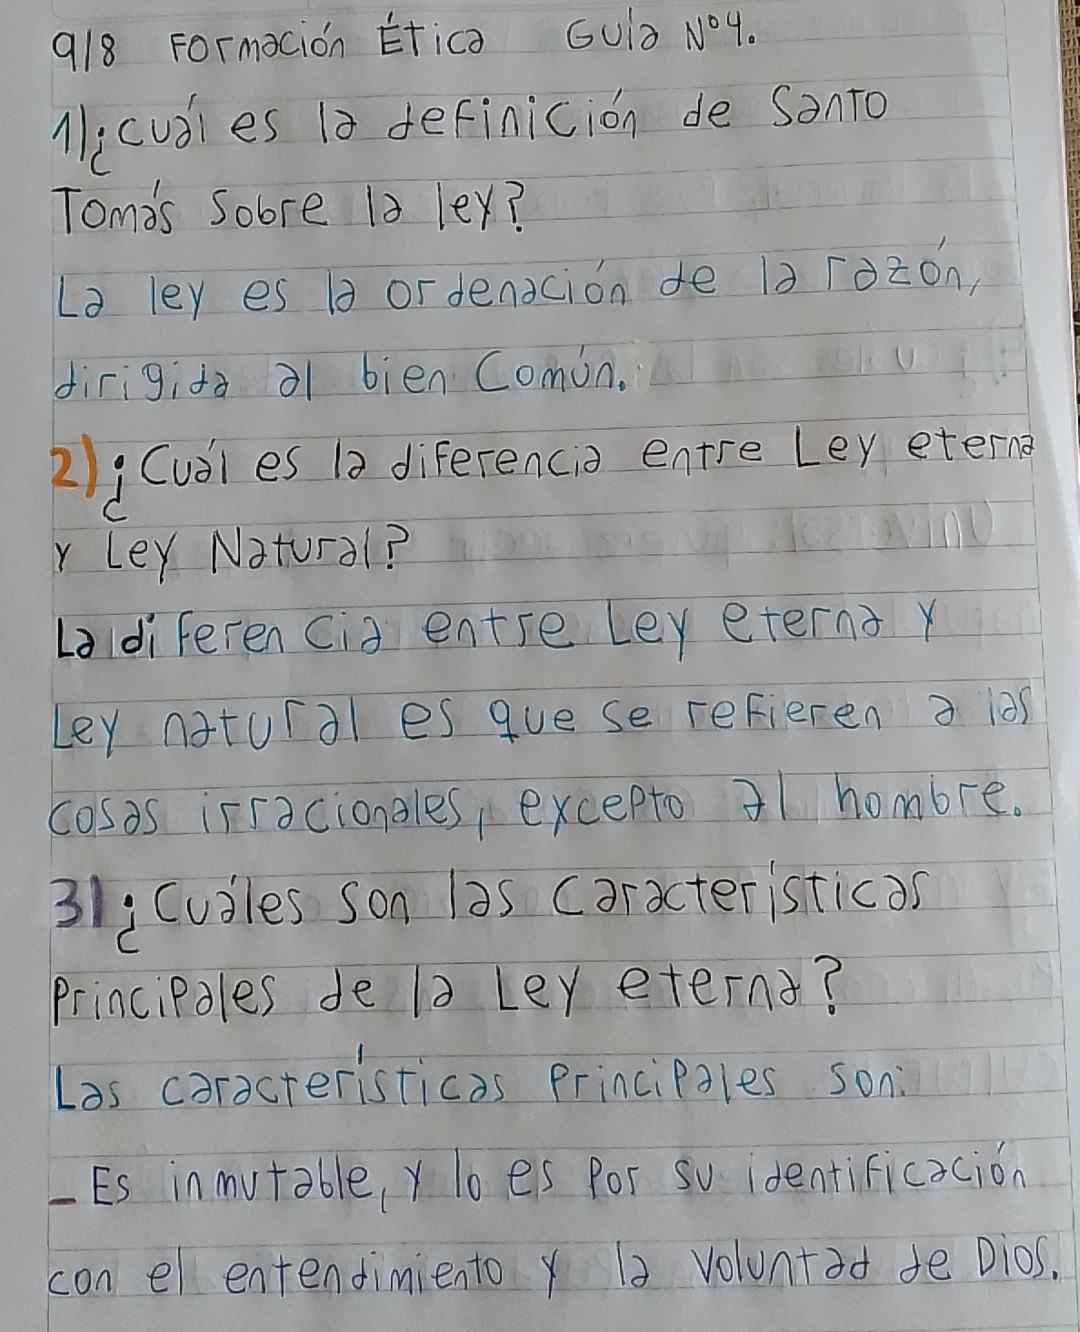 9/8 Formación Ética Guía Nº4.
1)¿cuál es la definición de Santo
Tomás sobre la ley?
La ley es la ordenación de la razón,
dirigida al bien Común.
2)¿Cuál es la diferencia entre Ley eterna
y Ley Natural?
La diferencia entre Ley eterna y
Ley natural es que se refieren a las
cosas irracionales, excepto al hombre.
3)¿Cuáles son las características
Principales de la Ley eterna?
Las características Principales son:
- Es inmutable, y lo es por su identificación
con el entendimiento y la voluntad de Dios.